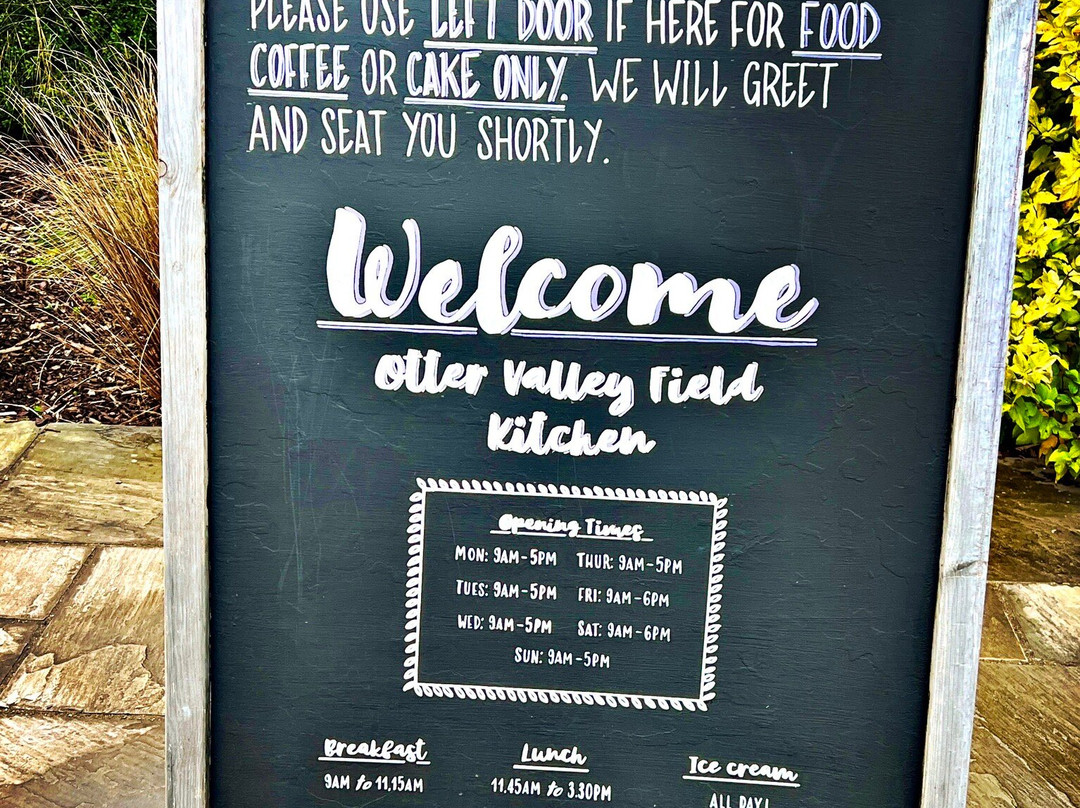 PLEASE USE LEFT DOOR IF HERE FOR FOOD
COFFEE OR CAKE ONLY. WE WILL GREET
AND SEAT YOU SHORTLY.
Welcome
Otter Valley Field
Kitchen
Opening Times
MON: 9AM-5PM THUR: 9AM-5PM
TUES: 9AM-5PM FRI: 9AM-6PM
WED: 9AM-5PM SAT: 9AM-6PM
SUN: 9AM-5PM
Breakfast Lunch Ice cream
9AM to 11.15AM 11.45AM to 3.30PM ALL DAY!